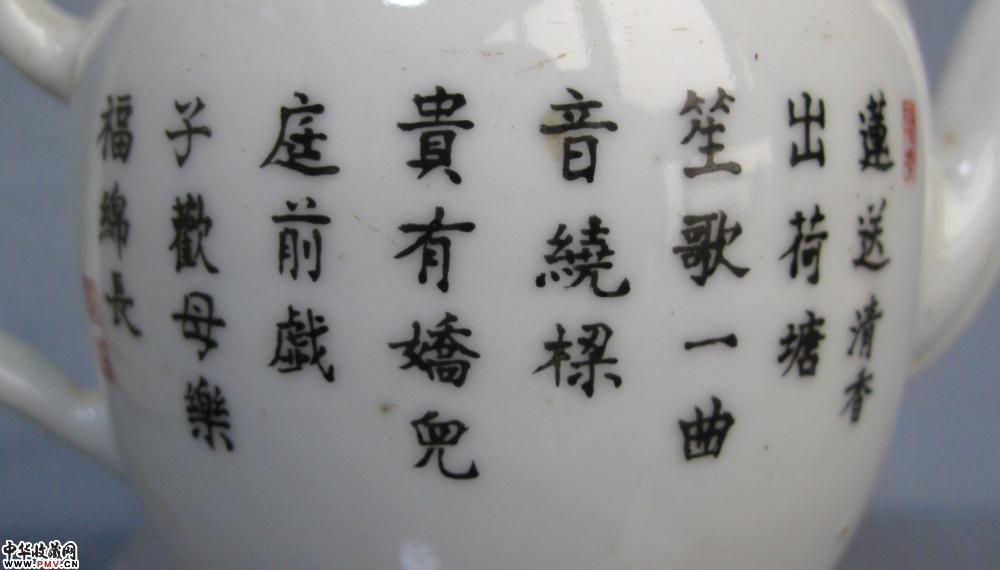 蓮送清香
出荷塘
笙歌一曲
音繞樑
貴有嬌兒
庭前戯
子歡母樂
福綿長
中华收藏网
www.PMV.CN